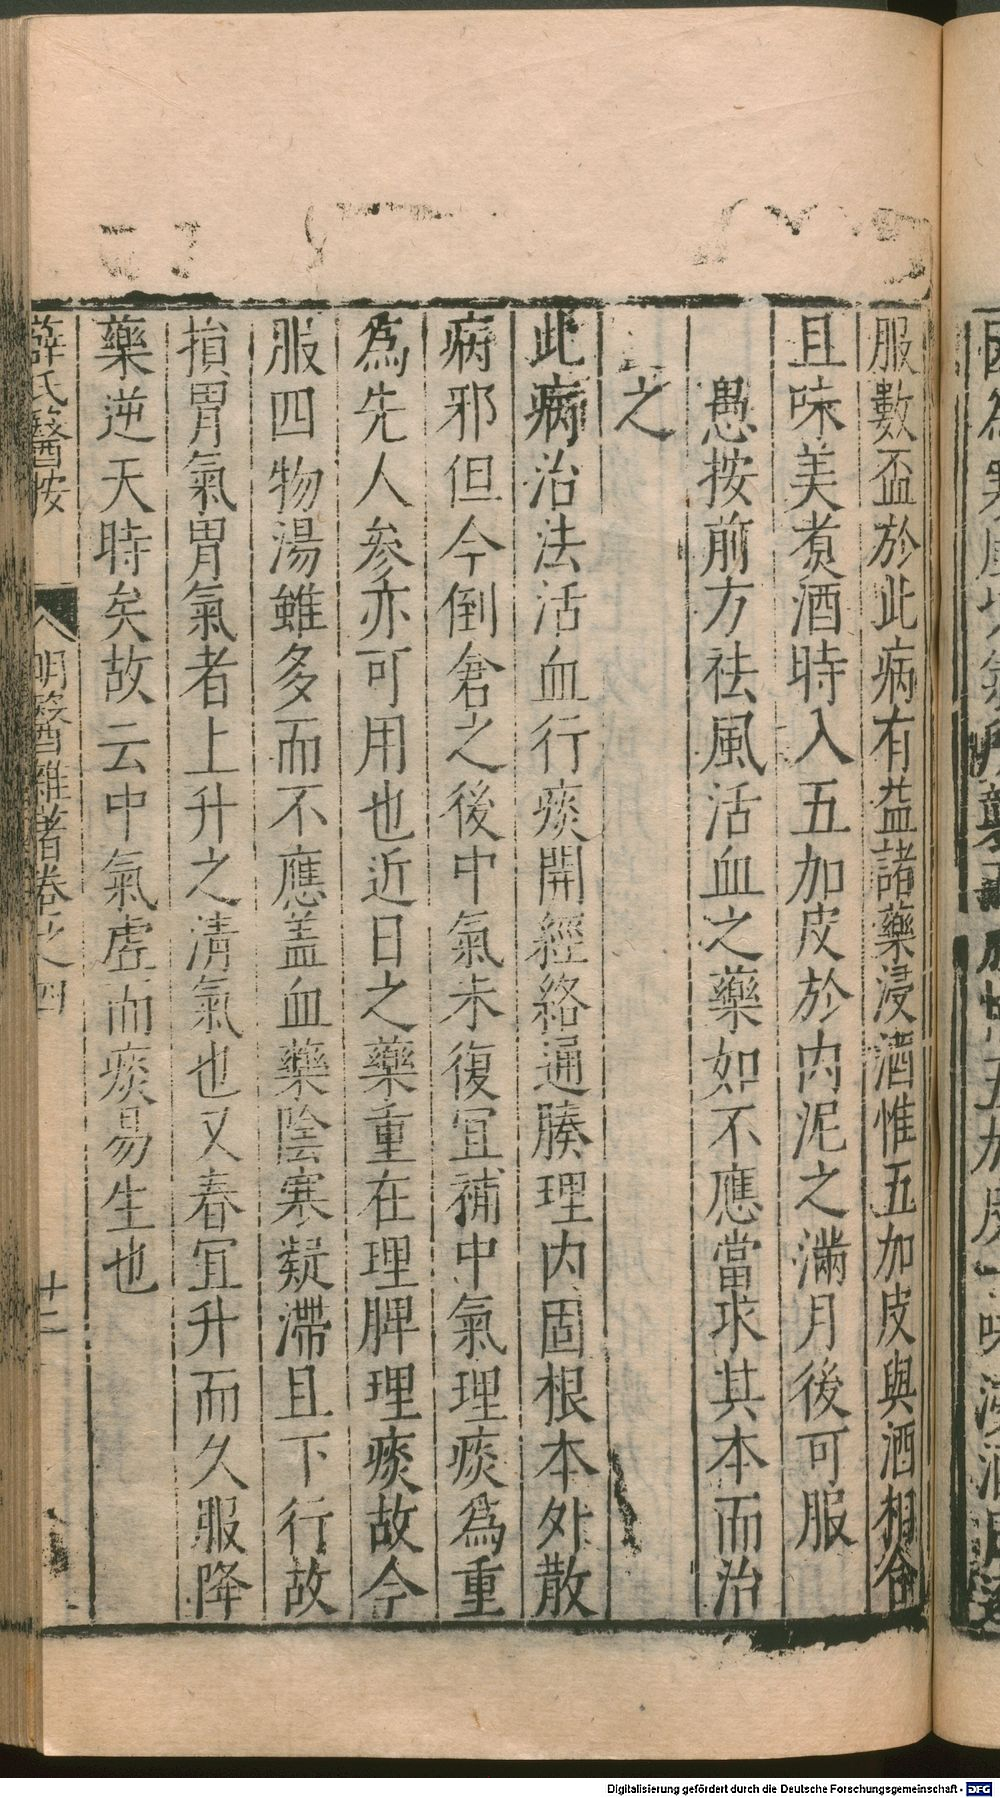 服數盃於此病有益諸藥浸酒惟五加皮與酒相合
且味美煑酒時入五加皮於内泥之滿月後可服
愚按前方祛風活血之藥如不應當求其本而治
之
此病治法活血行痰開經絡通腠理内固根本外散
病邪但今倒倉之後中氣未復宜補中氣理痰爲重
爲先人參亦可用也近日之藥重在理脾理痰故今
服四物湯雖多而不應盖血藥陰寒凝滯且下行故
損胃氣胃氣者上升之清氣也又春宜升而久服降
藥逆天時矣故云中氣虛而痰易生也
薛氏醫按
明醫雜著卷之四
十二
Digitalisierung gefördert durch die Deutsche Forschungsgemeinschaft - DFG